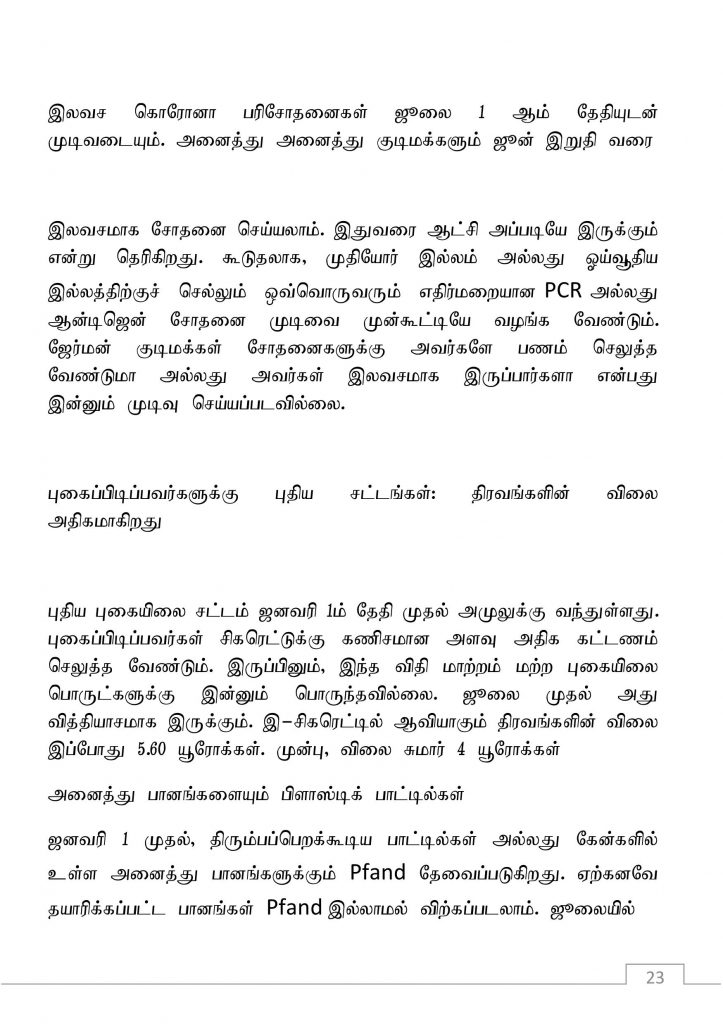 இலவச கொரோனா பரிசோதனைகள் ஜூலை 1 ஆம் தேதியுடன்
முடிவடையும். அனைத்து அனைத்து குடிமக்களும் ஜூன் இறுதி வரை
இலவசமாக சோதனை செய்யலாம். இதுவரை ஆட்சி அப்படியே இருக்கும்
என்று தெரிகிறது. கூடுதலாக, முதியோர் இல்லம் அல்லது ஓய்வூதிய
இல்லத்திற்குச் செல்லும் ஒவ்வொருவரும் எதிர்மறையான PCR அல்லது
ஆன்டிஜென் சோதனை முடிவை முன்கூட்டியே வழங்க வேண்டும்.
ஜேர்மன் குடிமக்கள் சோதனைகளுக்கு அவர்களே பணம் செலுத்த
வேண்டுமா அல்லது அவர்கள் இலவசமாக இருப்பார்களா என்பது
இன்னும் முடிவு செய்யப்படவில்லை.
புகைப்பிடிப்பவர்களுக்கு புதிய சட்டங்கள்: திரவங்களின் விலை
அதிகமாகிறது
புதிய புகையிலை சட்டம் ஜனவரி 1ம் தேதி முதல் அமுலுக்கு வந்துள்ளது.
புகைப்பிடிப்பவர்கள் சிகரெட்டுக்கு கணிசமான அளவு அதிக கட்டணம்
செலுத்த வேண்டும். இருப்பினும், இந்த விதி மாற்றம் மற்ற புகையிலை
பொருட்களுக்கு இன்னும் பொருந்தவில்லை. ஜூலை முதல் அது
வித்தியாசமாக இருக்கும். இ-சிகரெட்டில் ஆவியாகும் திரவங்களின் விலை
இப்போது 5.60 யூரோக்கள். முன்பு, விலை சுமார் 4 யூரோக்கள்
அனைத்து பானங்களையும் பிளாஸ்டிக் பாட்டில்கள்
ஜனவரி 1 முதல், திரும்பப்பெறக்கூடிய பாட்டில்கள் அல்லது கேன்களில்
உள்ள அனைத்து பானங்களுக்கும் Pfand தேவைப்படுகிறது. ஏற்கனவே
தயாரிக்கப்பட்ட பானங்கள் Pfand இல்லாமல் விற்கப்படலாம். ஜூலையில்
23